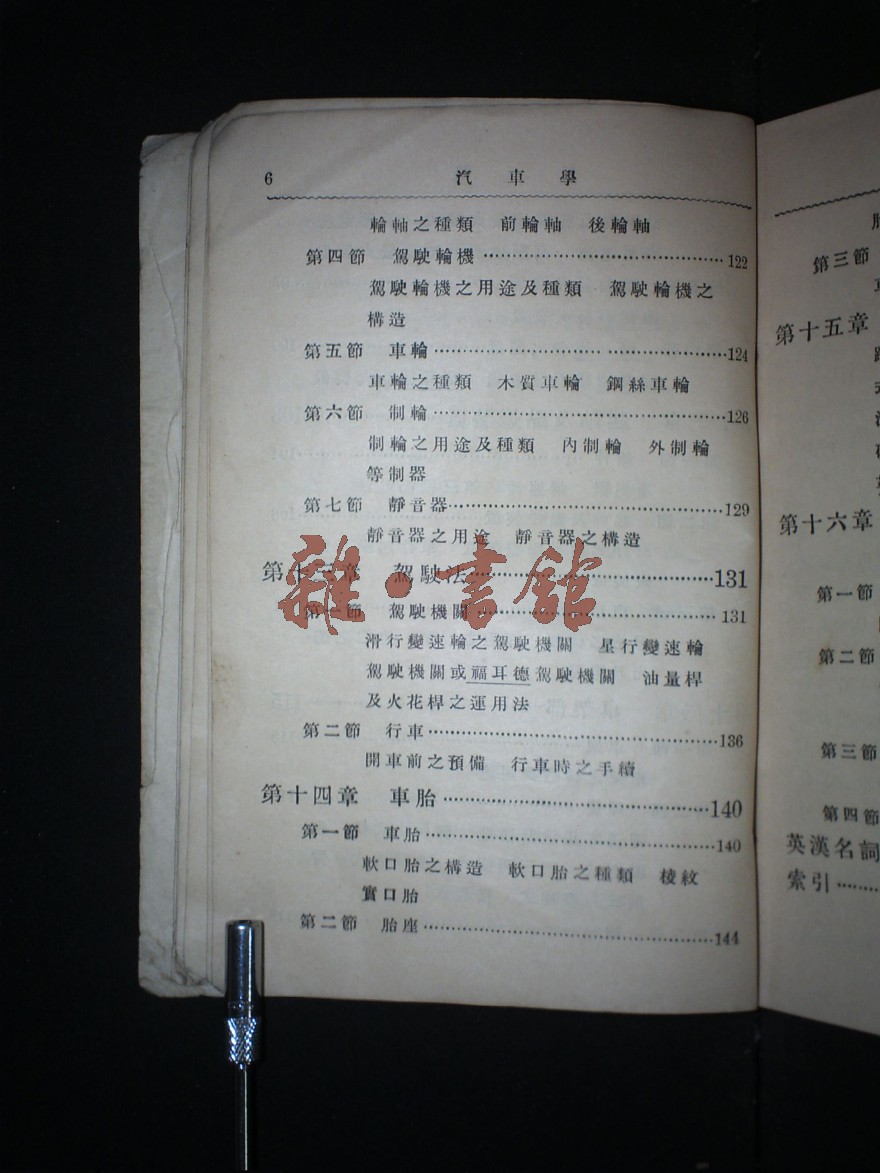 6 汽車學
輪軸之種類 前輪軸 後輪軸
第四節 駕駛輪機……………………………122
駕駛輪機之用途及種類 駕駛輪機之
構造
第五節 車輪……………………………124
車輪之種類 木質車輪 鋼絲車輪
第六節 制輪……………………………126
制輪之用途及種類 內制輪 外制輪
等制器
第七節 靜音器……………………………129
靜音器之用途 靜音器之構造
第十三章 駕駛法……………………………131
第一節 駕駛機關……………………………131
滑行變速輪之駕駛機關 星行變速輪
駕駛機關或福耳德駕駛機關 油量桿
及火花桿之運用法
第二節 行車……………………………136
開車前之預備 行車時之手續
第十四章 車胎……………………………140
第一節 車胎……………………………140
軟口胎之構造 軟口胎之種類 棱紋
實口胎
第二節 胎座……………………………144
雜·書館
第三節
第十五章
第十六章
第一節
第二節
第三節
第四節
英漢名詞
索引………